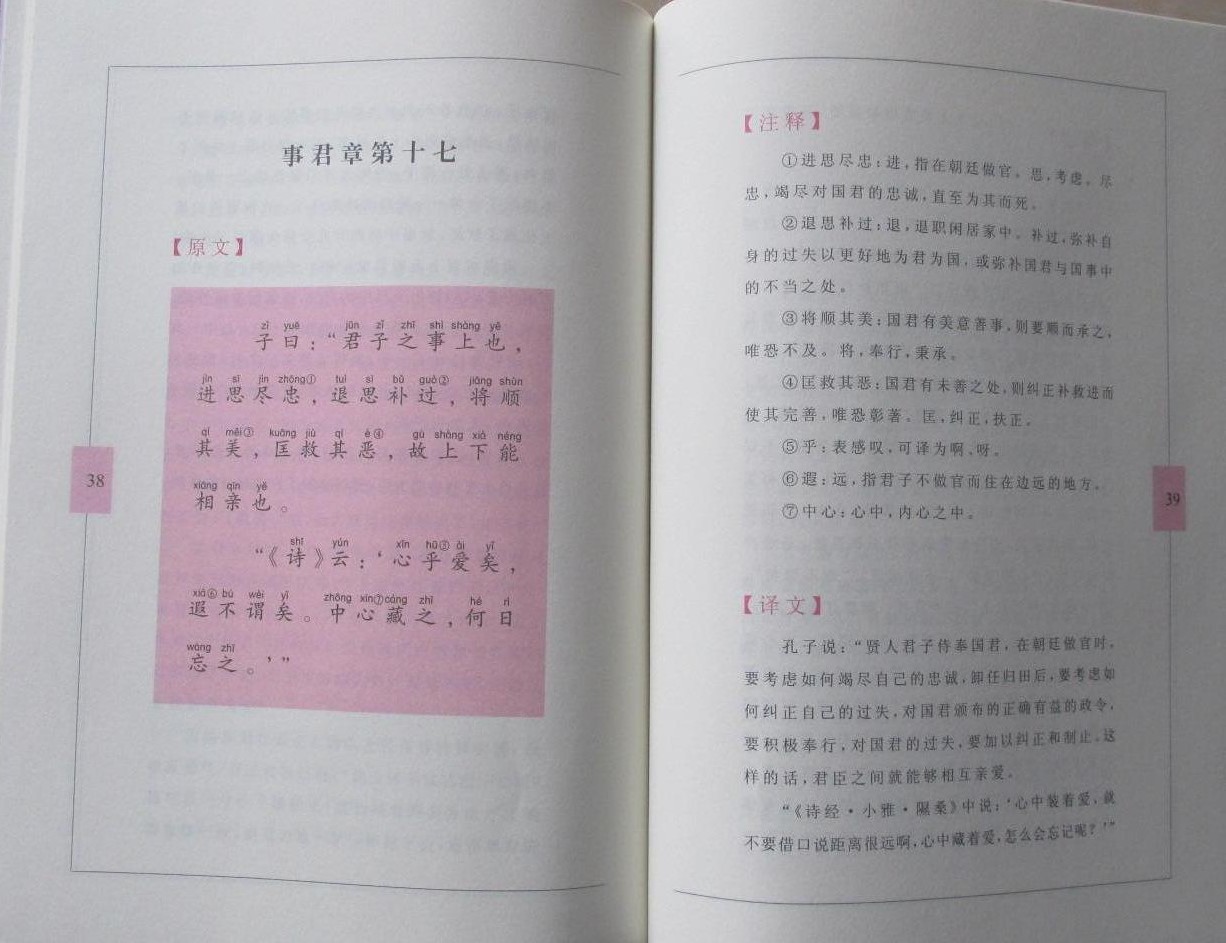 事君章第十七
【原文】
zǐ yuē jūn zǐ zhī shì shàng yě
子曰：“君子之事上也，
jìn sī jìn zhōng① tuì sī bǔ guò② jiāng shùn
进思尽忠，退思补过，将顺
qí měi③ kuāng jiù qí è④ gù shàng xià néng
其美，匡救其恶，故上下能
xiāng qīn yě
相亲也。
shī yún xīn hū⑤ ài yǐ
“《诗》云：‘心乎爱矣，
xiá⑥ bú wèi yǐ zhōng xīn⑦ cáng zhī hé rì
遐不谓矣。中心藏之，何日
wàng zhī
忘之。’”
38
【注释】
①进思尽忠：进，指在朝廷做官。思，考虑。尽
忠，竭尽对国君的忠诚，直至为其而死。
②退思补过：退，退职闲居家中。补过，弥补自
身的过失以更好地为君为国，或弥补国君与国事中
的不当之处。
③将顺其美：国君有美意善事，则要顺而承之，
唯恐不及。将，奉行，秉承。
④匡救其恶：国君有未善之处，则纠正补救进而
使其完善，唯恐彰著。匡，纠正，扶正。
⑤乎：表感叹，可译为啊、呀。
⑥遐：远，指君子不做官而住在边远的地方。
⑦中心：心中，内心之中。
【译文】
孔子说：“贤人君子侍奉国君，在朝廷做官时，
要考虑如何竭尽自己的忠诚，卸任归田后，要考虑如
何纠正自己的过失，对国君颁布的正确有益的政令，
要积极奉行，对国君的过失，要加以纠正和制止。这
样的话，君臣之间就能够相互亲爱。
“《诗经·小雅·隰桑》中说：‘心中装着爱，就
不要借口说距离很远啊，心中藏着爱，怎么会忘记呢？’”
39